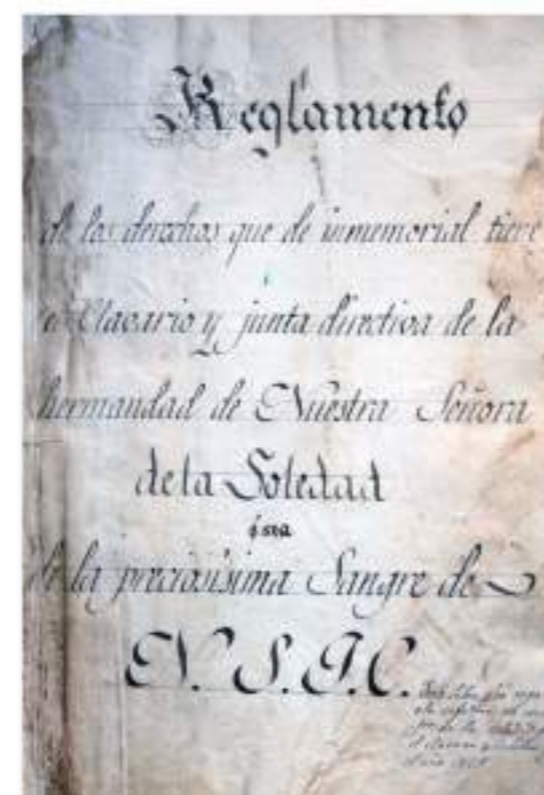 Reglamento
de los derechos que de inmemorial tiene
el Clavario y junta directiva de la
hermandad de Nuestra Señora
de la Soledad
ó sea
de la preciosisima Sangre de
N. S. J. C.
Este libro
el año